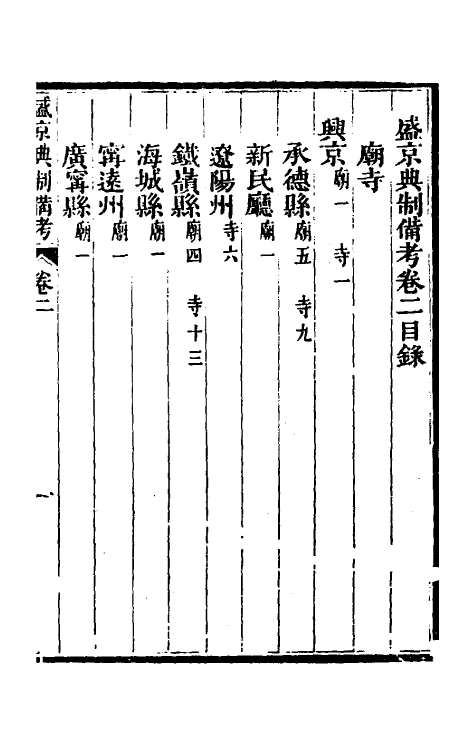 盛京典制備考卷二目錄
廟寺
興京廟一 寺一
承德縣廟五 寺九
新民廳廟一
遼陽州寺六
鐵嶺縣廟四 寺十三
海城縣廟一
甯遠州廟一
廣甯縣廟一
盛京典制備考 卷二 一